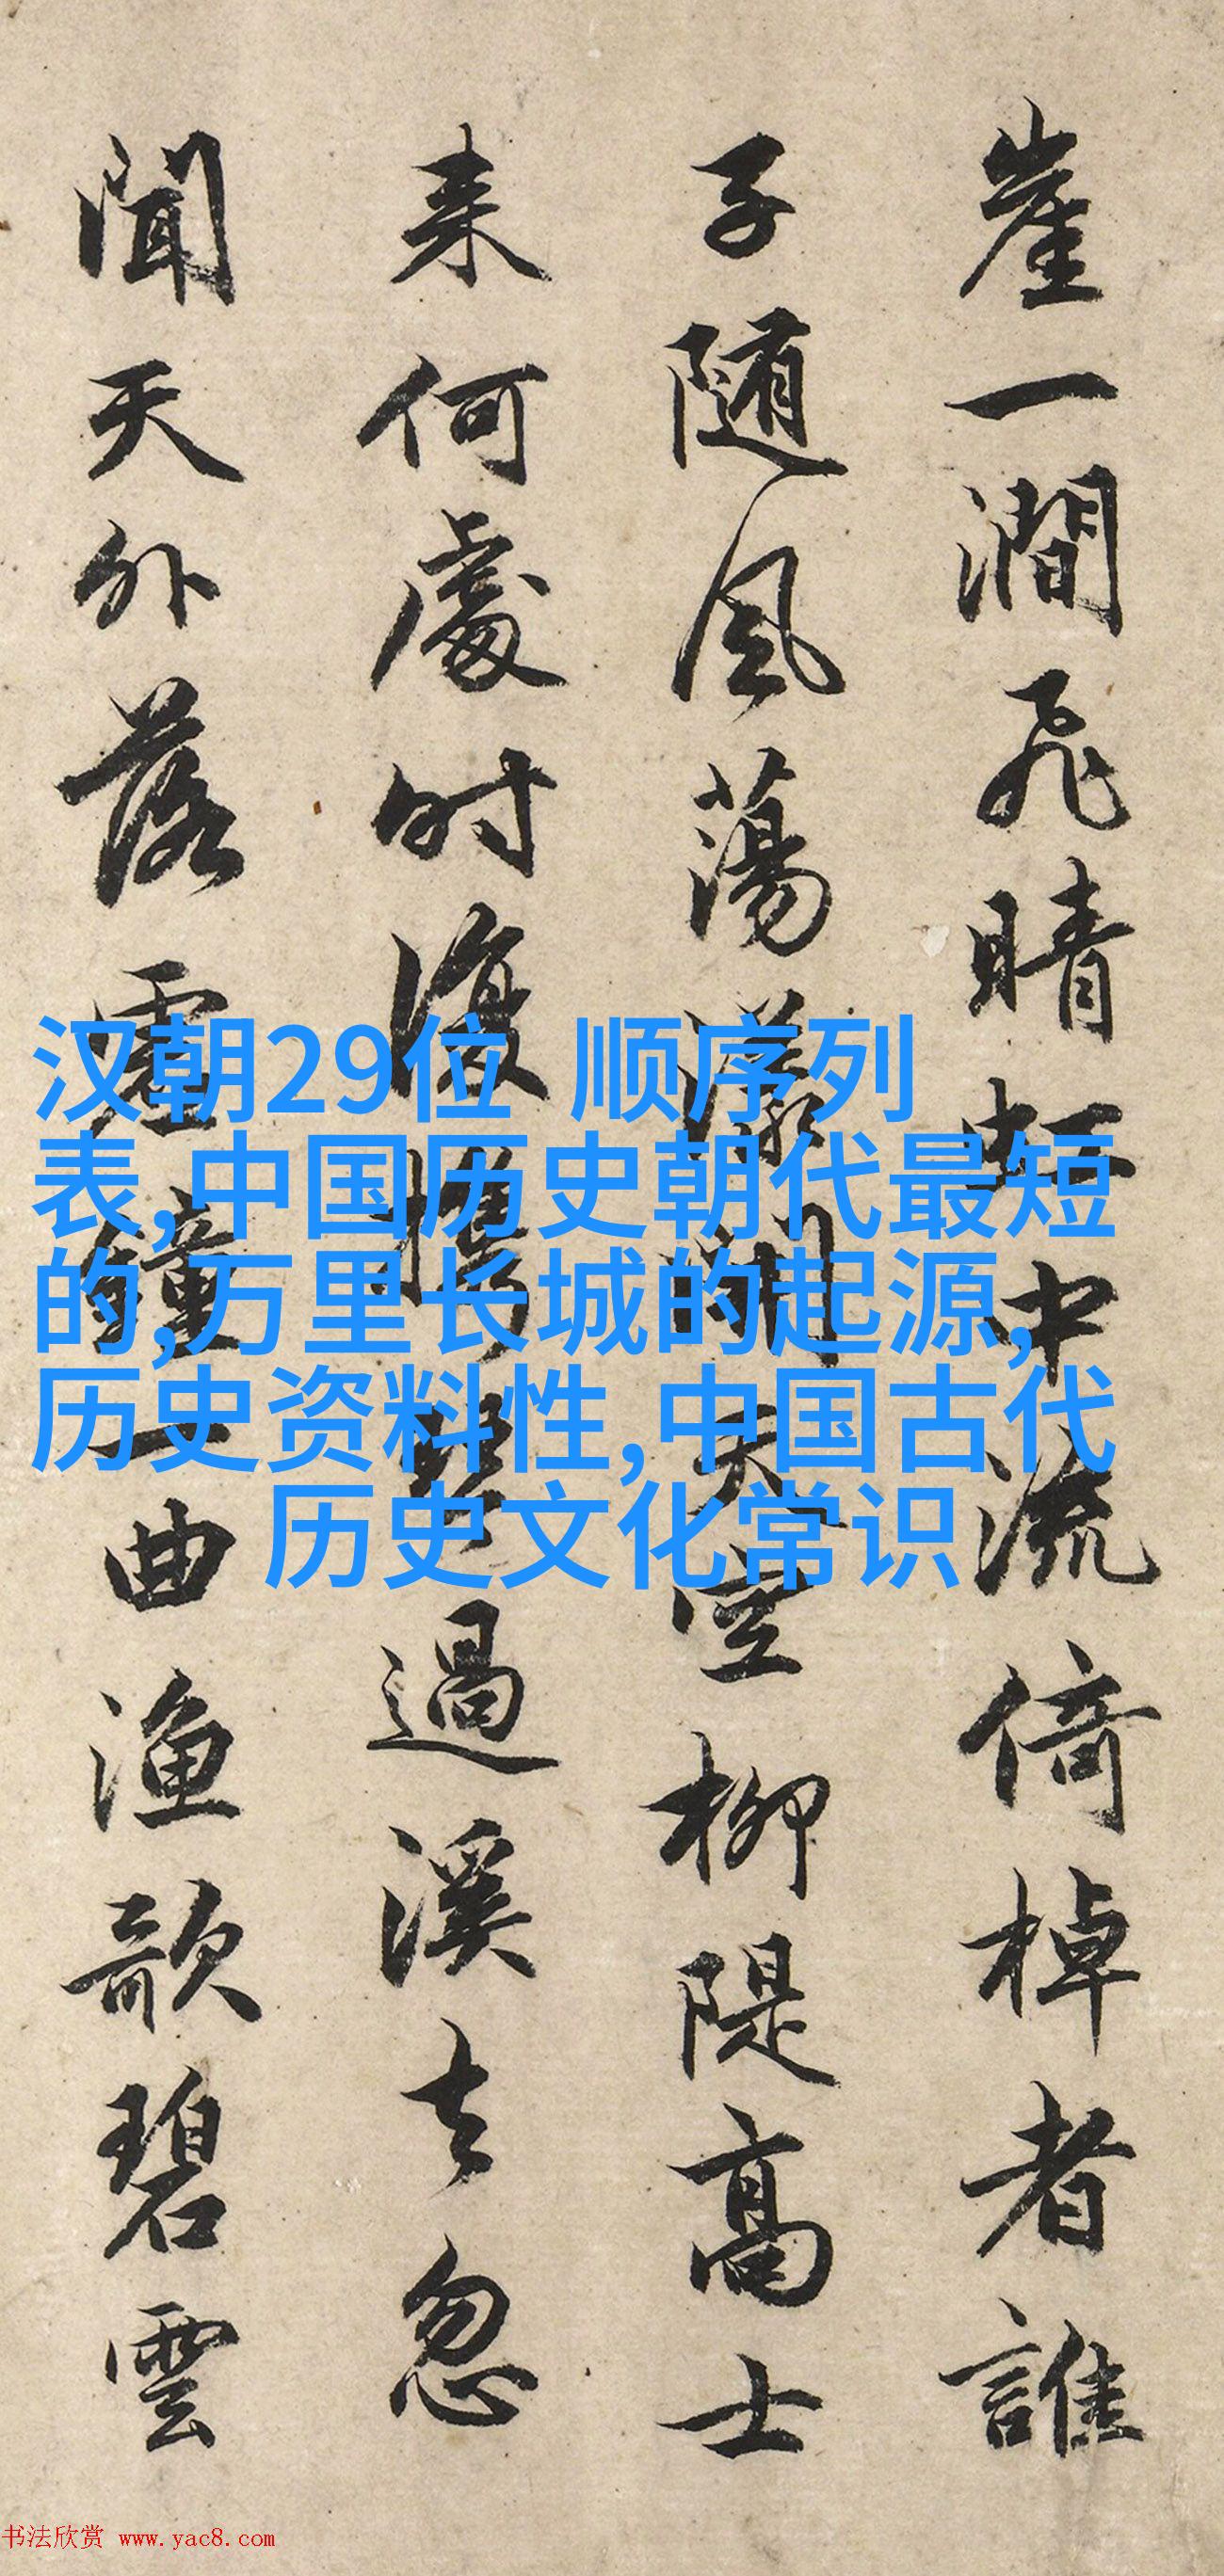 崖一澗飛晴虹中流倚棹者誰
子随風蕩漾天空柳隄高士
来何處時復携琴過溪去忽
聞天外落鐘一曲漁歌碧雲
汉朝29位 顺序列
表,中国历史朝代最短
的,万里长城的起源,
历史资料性,中国古代
历史文化常识
书法欣赏 www.yac8.com